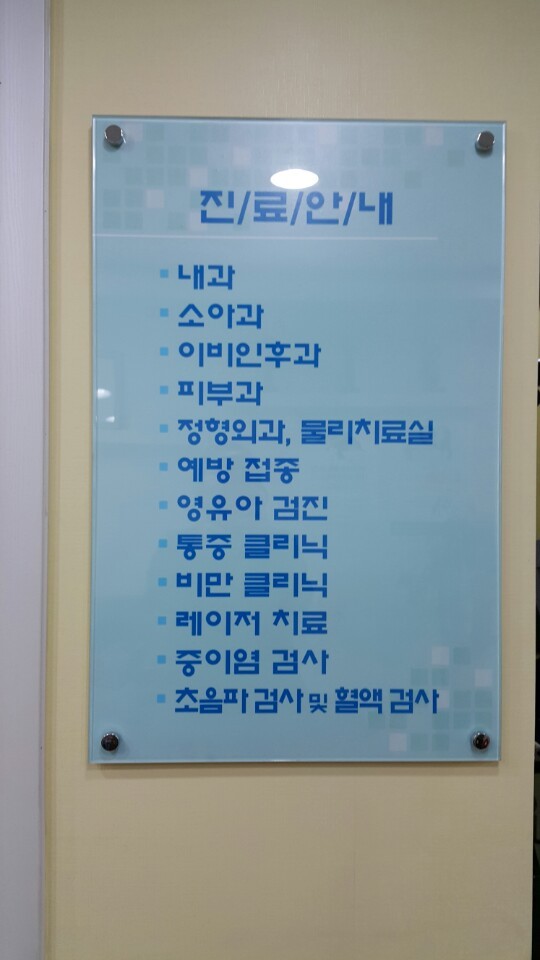 진/료/안/내
내과
소아과
이비인후과
피부과
정형외과, 물리치료실
예방 접종
영유아 검진
통증 클리닉
비만 클리닉
레이저 치료
중이염 검사
초음파 검사 및 혈액 검사